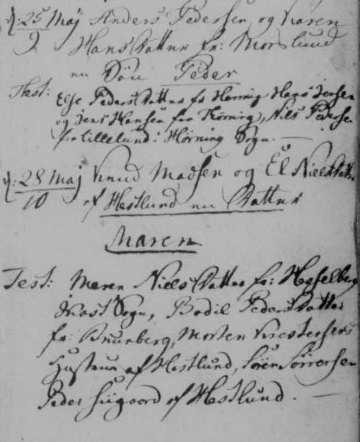 d. 25 Maj Anders Pedersen og Karen
Hans Datter fr: Morslund
en Søn Peder
Test: Else Peders Datter fr Hørnig
og Jens Hansen fra Hørnig, Nils Pedersen
fra Lillelund i Hørning Sogn.
d. 28 Maj Knud Madsen og El Niels Datter
10 af Hestlund en Datter
Maren
Test: Maren Niels Datter fr: Hesselberg
Sogn, Bodil Peders Datter
fr: Bruunberg, Morten Krestensens
Hustrue af Hestlund, Søren Sørensen
Peder Siigaard af Hestlund.